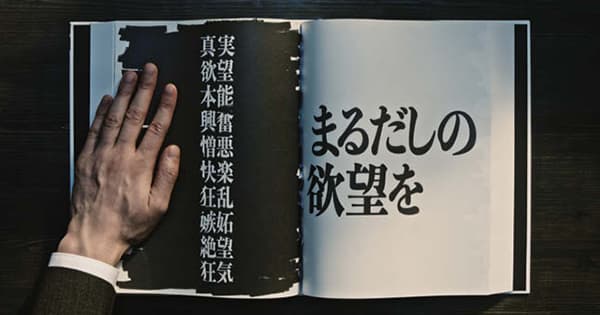 真実
欲望
本能
興奮
憎悪
快楽
狂乱
嫉妬
絶望
狂気
まるだしの
欲望を